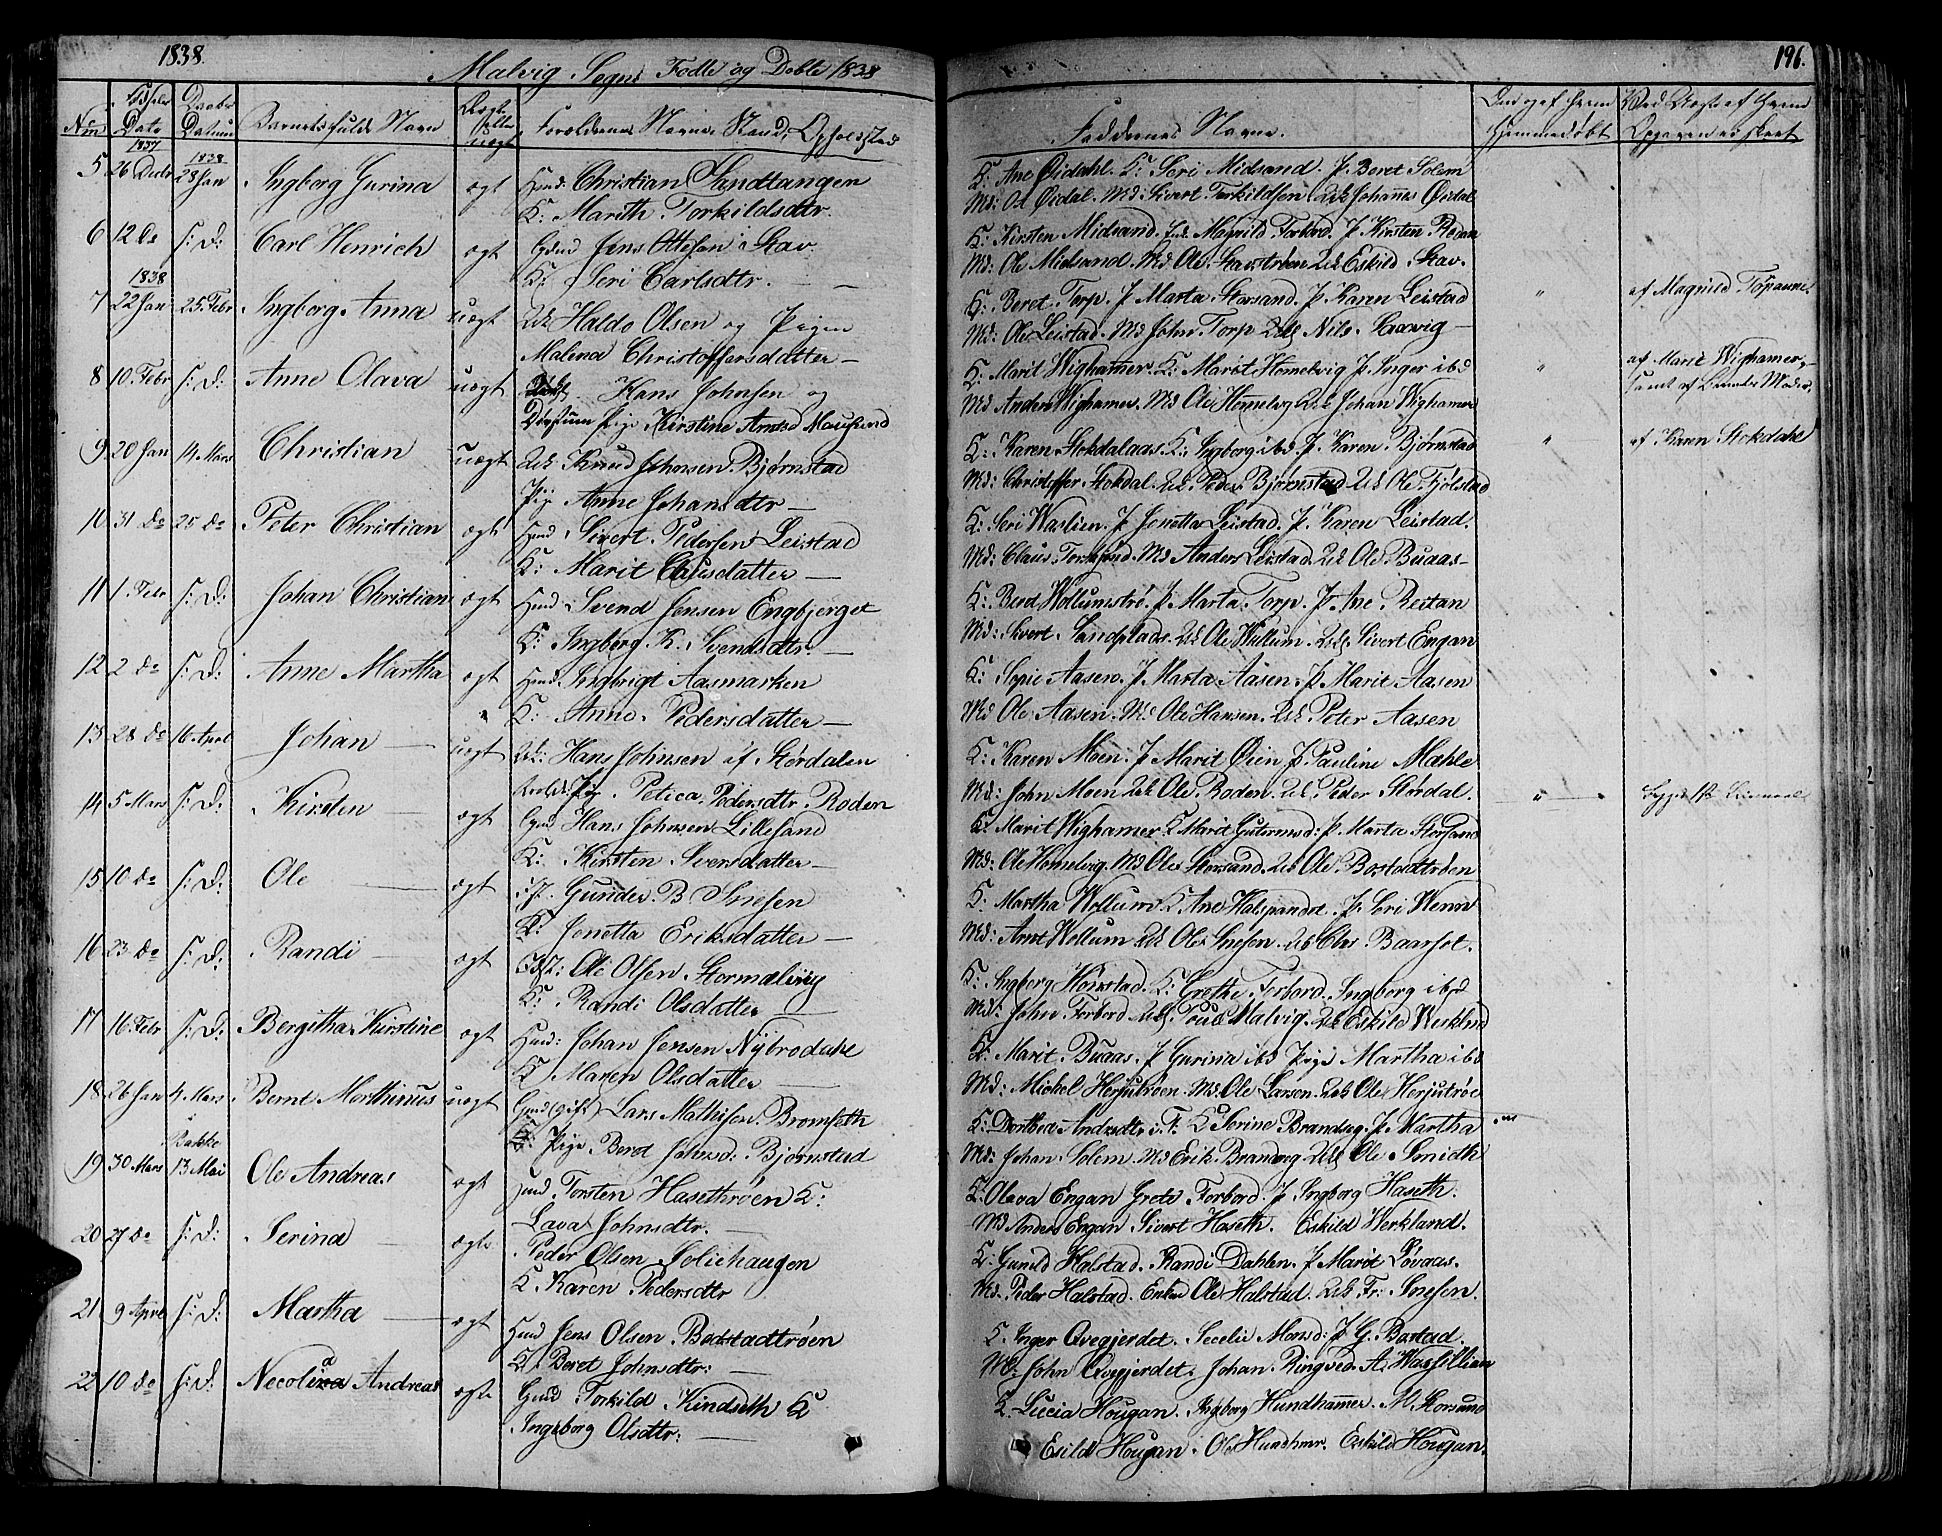 1838.
Malvig Sogns Fødte og Døbte 1838
196.
Num Fødsels Dato Daabs Datum Barnets fulde Navn Ægte eller uægt Forældrenes Navne, Stand, Opholdsted
Faddernes Navne.
Om og af hvem Hjemmedøbt
1837 1838
5 26 Decbr 28 Jan Ingborg Gurina ægt Huusd. Christian Sandtangen
K: Marith Torkildsdtr.
K: Ane Øidahl. K: Seri Midsand. P. Beret Solem
Md: Ol Øidal. Md: Sivert Torkildsen. Johannes Øidal
6 12 Do S: D: Carl Henrich ægt Gmd Jens Ottesen i Stav
K: Seri Carlsdtr. —
K: Kirsten Midsand. Magnild Forbord. P Kirsten
Md: Ole Midsand. Md Ole Stavstrøen Eskild Stav.
1838
7 22 Jan 25. Febr Ingborg Anna uægt Haldo Olsen og Pigen
Malena Christoffersdatter —
K: Beret Torp. P Marta Storsand. P Karen Leistad
Md: Ole Leistad. Md John Torp Nils Saxvig —
" af Magnild
8 10. Febr S: D: Anne Olava uægt Hans Johnsen og
Pige Kirstine
K: Marit Wighamer. K: Marit Homelvig P. Inger ibd
Md Anders Wighamer. Md Ole Homelvg Johan Wighamer
" af Marit Wighamer
samt af Barnets Moder
9 20 Jan 14. Mars Christian uægt Knud Johnsen Bjørnstad
Pig Anne Johansdtr —
K: Karen Stokdalaas K: Ingborg ibd P. Karen Bjørnstad
Md: Christoffer Stokdal. Peder Bjørnstad Ole Fjølstad
" af Karen Stokdahl
10 31 Do 25 Do Peter Christian ægt Huusd Sivert Pedersen Leistad
K: Marit Clausdatter —
K: Seri Waslien. P Jonetta Leistad. P. Karen Leistad.
Md: Claus Md Anders Leistad. Ole Buaas —
11 1. Febr S: D: Johan Christian ægt Huusd Svend Jensen Engbjerget
K: Ingborg K. Svendsdtr. —
K: Wollumstrø. P Marta Torp. P Ane Restan
Md: Sivert Sandplads. Ole Wullum. Sivert Engan
12 2 Do S: D: Anne Martha ægt Huusd. Ingbrigt Aasmarken
K: Anne Pedersdatter —
K: Aasen. P Marta Aasen. P Marit Aasen
Md Ole Aasen. Md Ole Hansen. Peter Aasen
13 28 Do 16 April Johan — uægt Hans Johnsen af Størdalen
Pige Petica Pedersdtr Roden
K: Karen Moen. P Marit Øien P Pauline Mæhle
Md: John Moen Ole Roden. Peder Størdal.
14 5 Mars S: D: Kirsten — ægt Gmd Hans Johnsen Lillesand
K: Kirsten Svensdatter —
K: Marit Wighamer K Marit P Marta Storsand
Md: Ole Homelvig. Md Ole Storsand. Ole Bostadtrøen
15 10 Do S: D: Ole — ægt Gunder B Snesen
K: Jonetta Eriksdatter —
K: Martha Wollum K Ane P. Seri Wenn
Md: Arnt Wollum Ole Snesen. Baarset.
16 23 Do S: D: Randi — ægt Ole Olsen Stormalvig
K: Randi Olsdatter —
K: Ingborg Hønstad. K: Grethe Forbord. Ingborg ibd
Md: John Forbord Malvig. Eskild
17 16 Febr S: D: Bergitha Kirstine ægt Huusd: Johan Jensen Nybrodahl
K Maren Olsdatter —
K: Marit Buaas. P Gurina ibd Pige Martha ibd
Md: Mickel Herjutrøen. Md Ole Larsen. Ole Herjutrøe
18 26 Jan 4. Mars Bernt Morthinus uægt Gmd (gift) Lars Mathisen Bromseth
Pige Beret Johnsd: Bjørnstad
K: Dorthea Andrsdtr i T. K Serine Brandseg. P. Martha
Md: Johan Solem Md Erik Brandseg Ole Smidh
Bakke
19 30 Mars 13. Mai Ole Andreas ægt Huusd Torsten Hasettrøen K:
Lava Johnsdtr. —
K. Olava Engan Grete Forbord. P Ingborg Haseth.
Md Anders Engan Sivert Haseth. Eskild Werkland.
20 27 Do S: D: Serina — ægte Peder Olsen Soliehaugen
K. Karen Pedersdtr
K: Gunild Halstad. Randi Dahlen. P Marit Løvaas.
Md. Peder Halstad. Enken Ole Halstad. Fr: Snesen.
21 9 April S: D: Martha — ægt Huusd Jens Olsen Bostadtrøen
K. Beret Johnsdtr: —
K. Inger Qvegjerdet. Secelie Monsd: P G. Bostad.
Md: John Qvegjerdet. Johan Ringved. A. Hassillien
22 10 Do S: D: Necolina Andreas ægte Gmd Torkild Kindseth K
Ingeborg Olsdtr: —
K. Lucia Hougan. Ingborg Hundhamer. M. Storsand
Esild Hougan. Ole Hundhmr. Eskild Hougan.